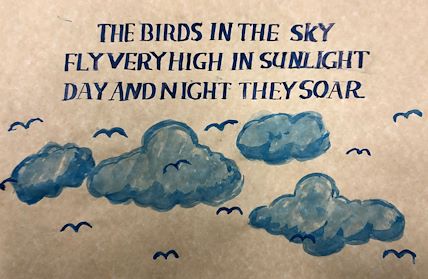 THE BIRDS IN THE SKY
FLY VERY HIGH IN SUNLIGHT
DAY AND NIGHT THEY SOAR